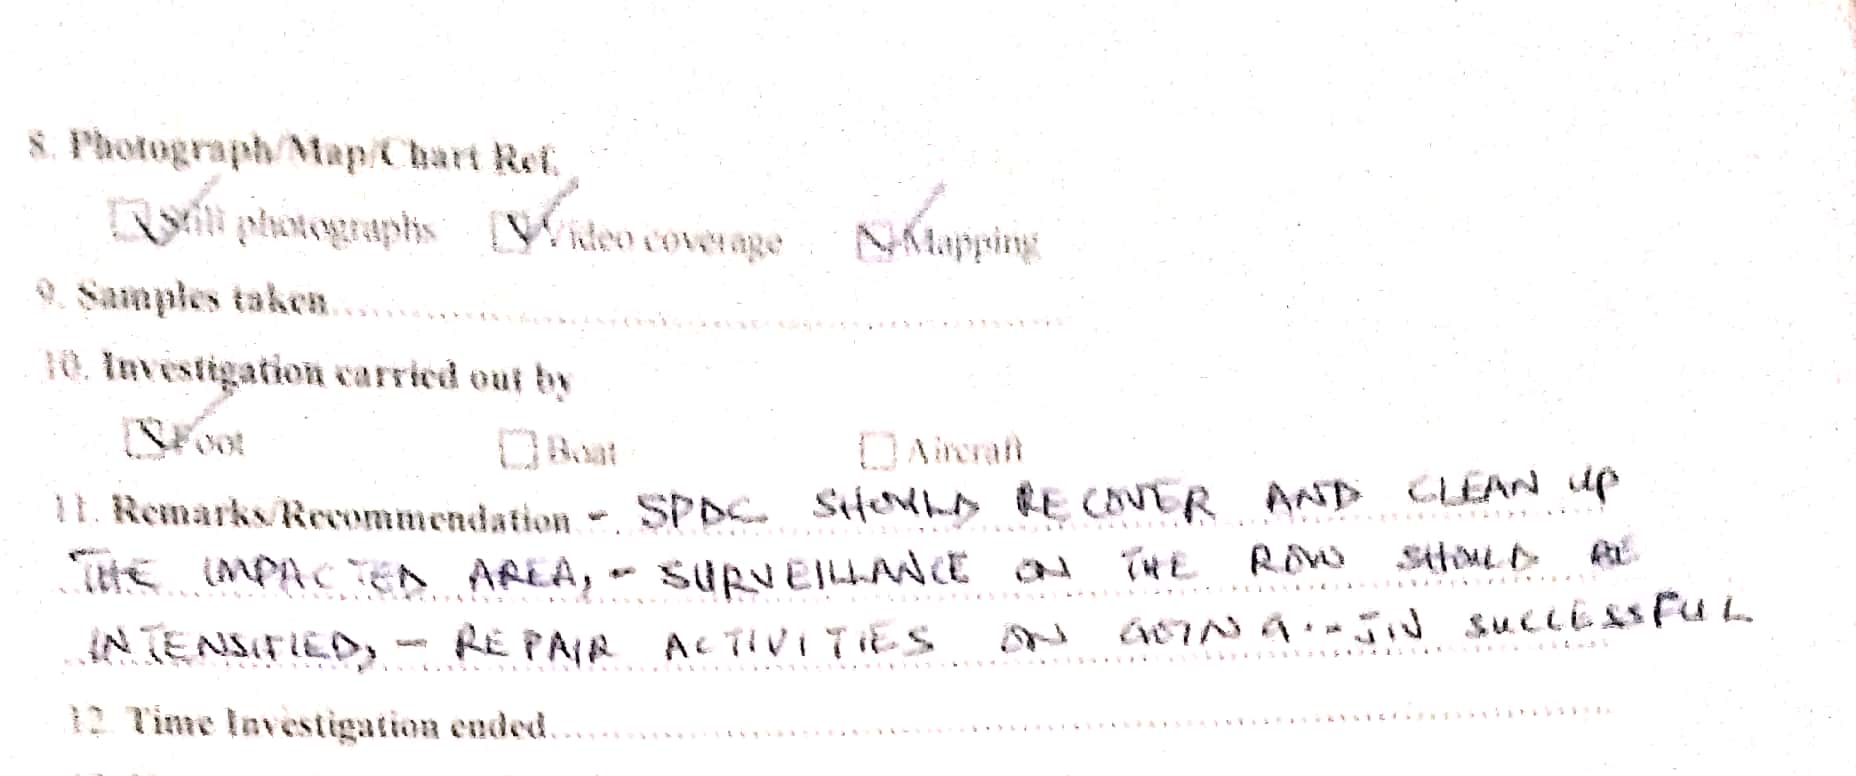 8. Photograph/Map/Chart Ref.
Still photographs Video coverage Mapping
9. Samples taken
10. Investigation carried out by
Foot Boat Aircraft
11. Remarks/Recommendation - SPDC SHOULD RECOVER AND CLEAN UP
THE IMPACTED AREA, - SURVEILLANCE ON THE ROW SHOULD BE
INTENSIFIED, - REPAIR ACTIVITIES ON GOING. - JIV SUCCESSFUL
12. Time Investigation ended